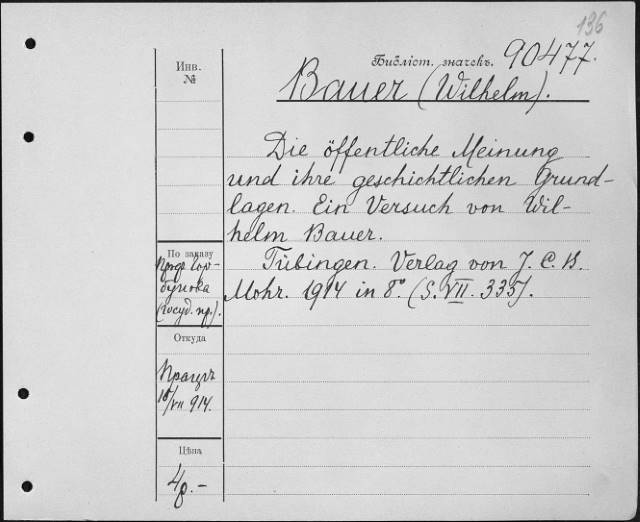 136
Библіот. значекъ. 90477.
Инв.
№
Bauer (Wilhelm).
Die öffentliche Meinung
und ihre geschichtlichen Grund-
lagen. Ein Versuch von Wil-
helm Bauer.
Tübingen. Verlag von J. C. B.
Mohr. 1914 in 8° (S. VII. 335).
По заказу
Проф. Гор-
бунова
(госуд. пр.).
Откуда
18/VII 914.
Цѣна
4р.-